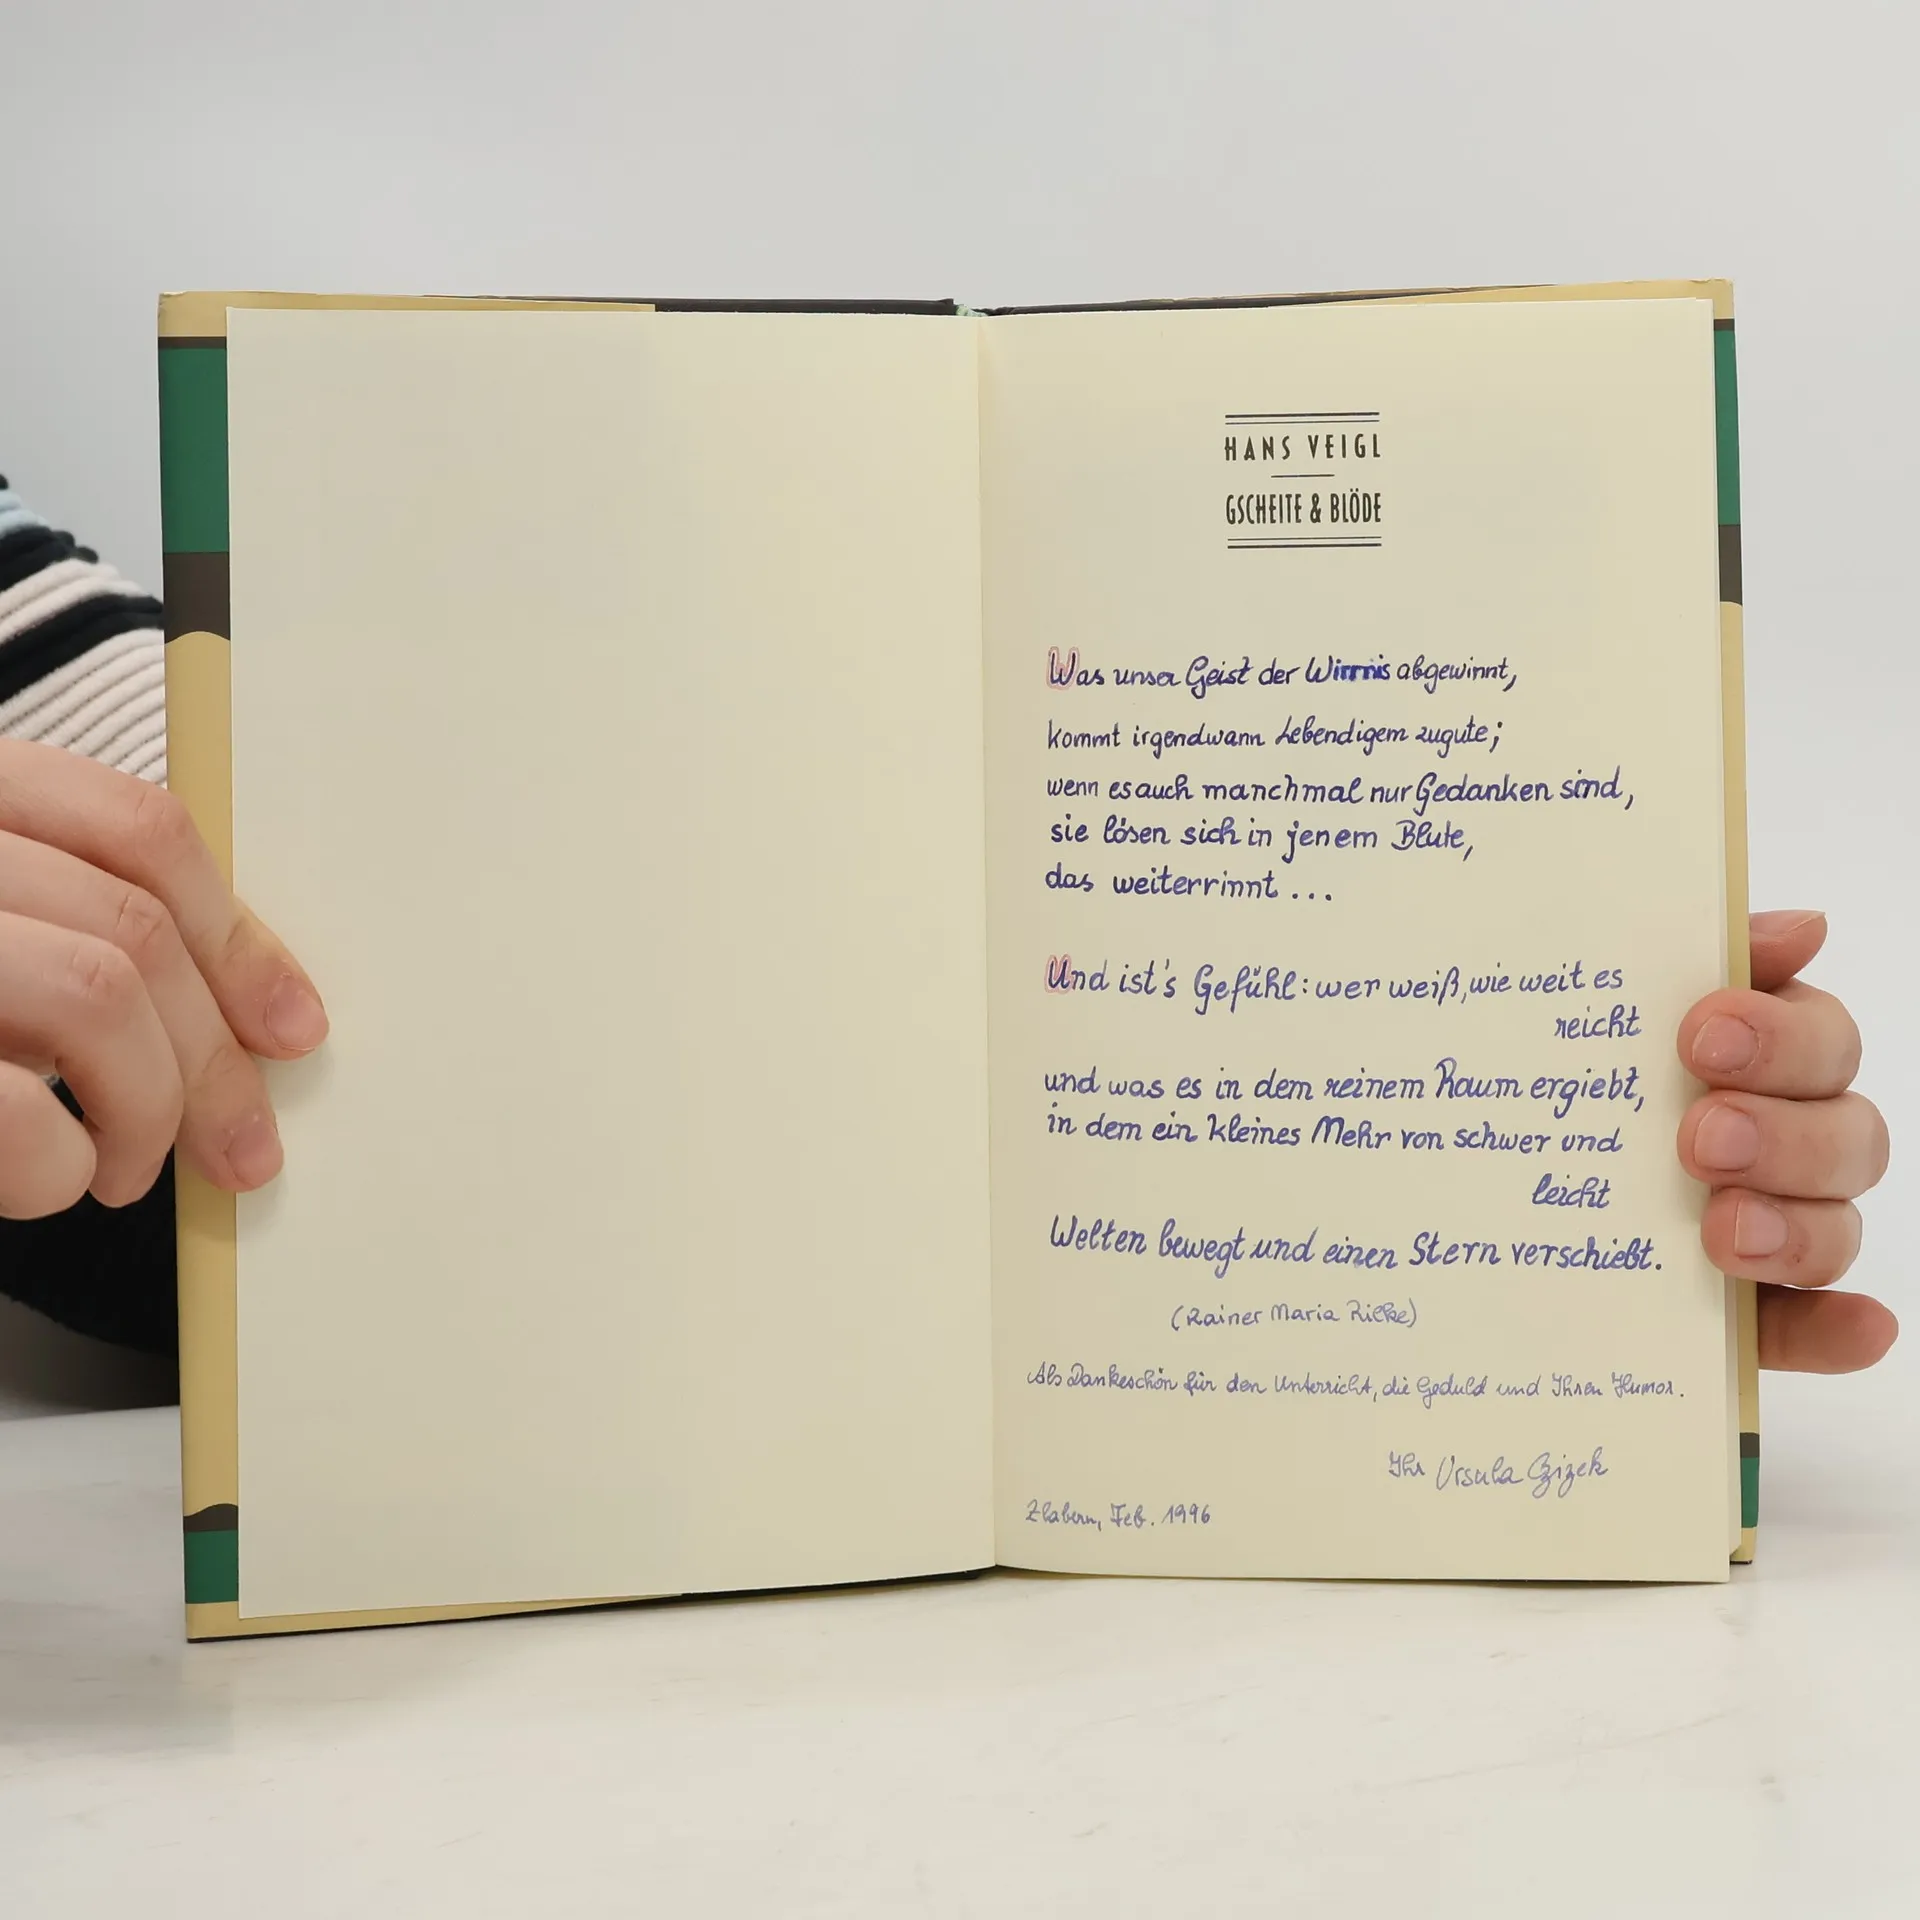 HANS VEIGL
GSCHEITE & BLÖDE
Was unser Geist der Wirrnis abgewinnt,
kommt irgendwann Lebendigem zugute;
wenn es auch manchmal nur Gedanken sind,
sie lösen sich in jenem Blute,
das weiterrinnt ...
Und ist's Gefühl: wer weiß, wie weit es
reicht
und was es in dem reinem Raum ergiebt,
in dem ein kleines Mehr von schwer und
leicht
Welten bewegt und einen Stern verschiebt.
(Rainer Maria Rilke)
Als Dankeschön für den Unterricht, die Geduld und Ihren Humor.
Ihr Ursula Czizek
Zlabern, Feb. 1996